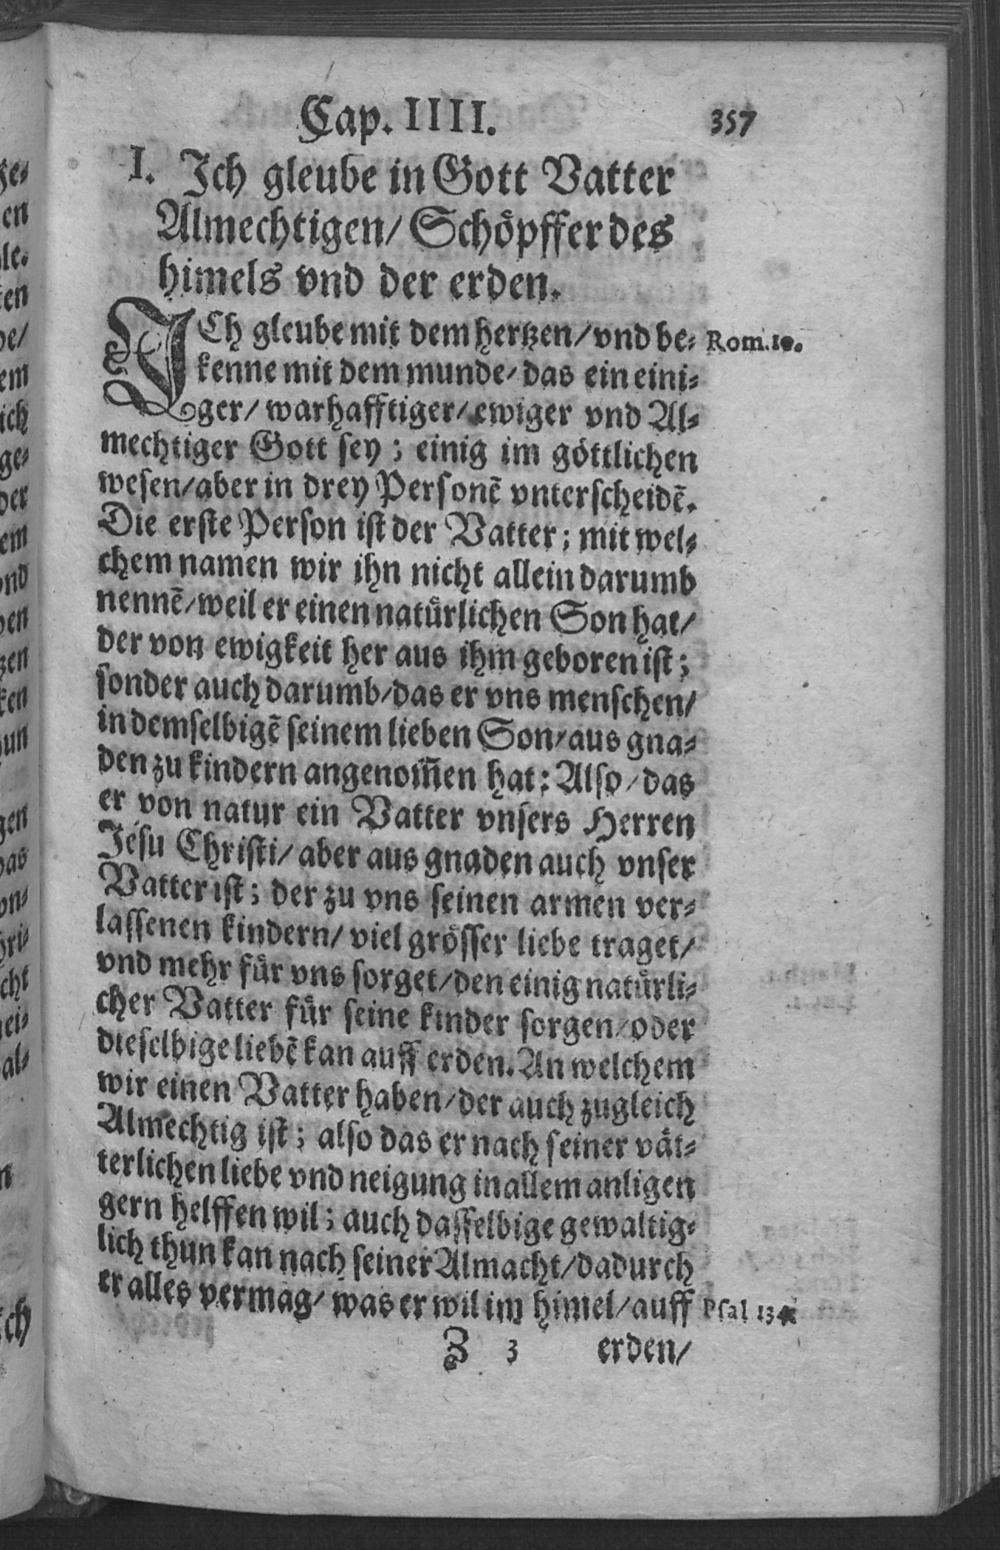 Cap. IIII. 357
I. Ich gleube in Gott Vatter
Almechtigen/ Schöpffer des
himels vnd der erden.
ICh gleube mit dem hertzen/ vnd be- Rom.10.
kenne mit dem munde/ das ein eini-
ger/ warhafftiger/ ewiger vnd Al-
mechtiger Gott sey; einig im göttlichen
wesen/ aber in drey Personē vnterscheidē.
Die erste Person ist der Vatter; mit wel-
chem namen wir ihn nicht allein darumb
nennē/ weil er einen natürlichen Son hat/
der von ewigkeit her aus ihm geboren ist;
sonder auch darumb/ das er vns menschen/
in demselbigē seinem lieben Son/ aus gna-
den zu kindern angenom̄en hat: Also/ das
er von natur ein Vatter vnsers Herren
Jesu Christi/ aber aus gnaden auch vnser
Vatter ist; der zu vns seinen armen ver-
lassenen kindern/ viel grösser liebe traget/
vnd mehr für vns sorget/ den einig natürli-
cher Vatter für seine kinder sorgen/ oder
dieselbige liebē kan auff erden. An welchem
wir einen Vatter haben/ der auch zugleich
Almechtig ist; also das er nach seiner vät-
terlichen liebe vnd neigung in allem anligen
gern helffen wil; auch dasselbige gewaltig-
lich thun kan nach seiner Almacht/ dadurch
er alles vermag/ was er wil im himel/ auff Psal
Z 3 erden/